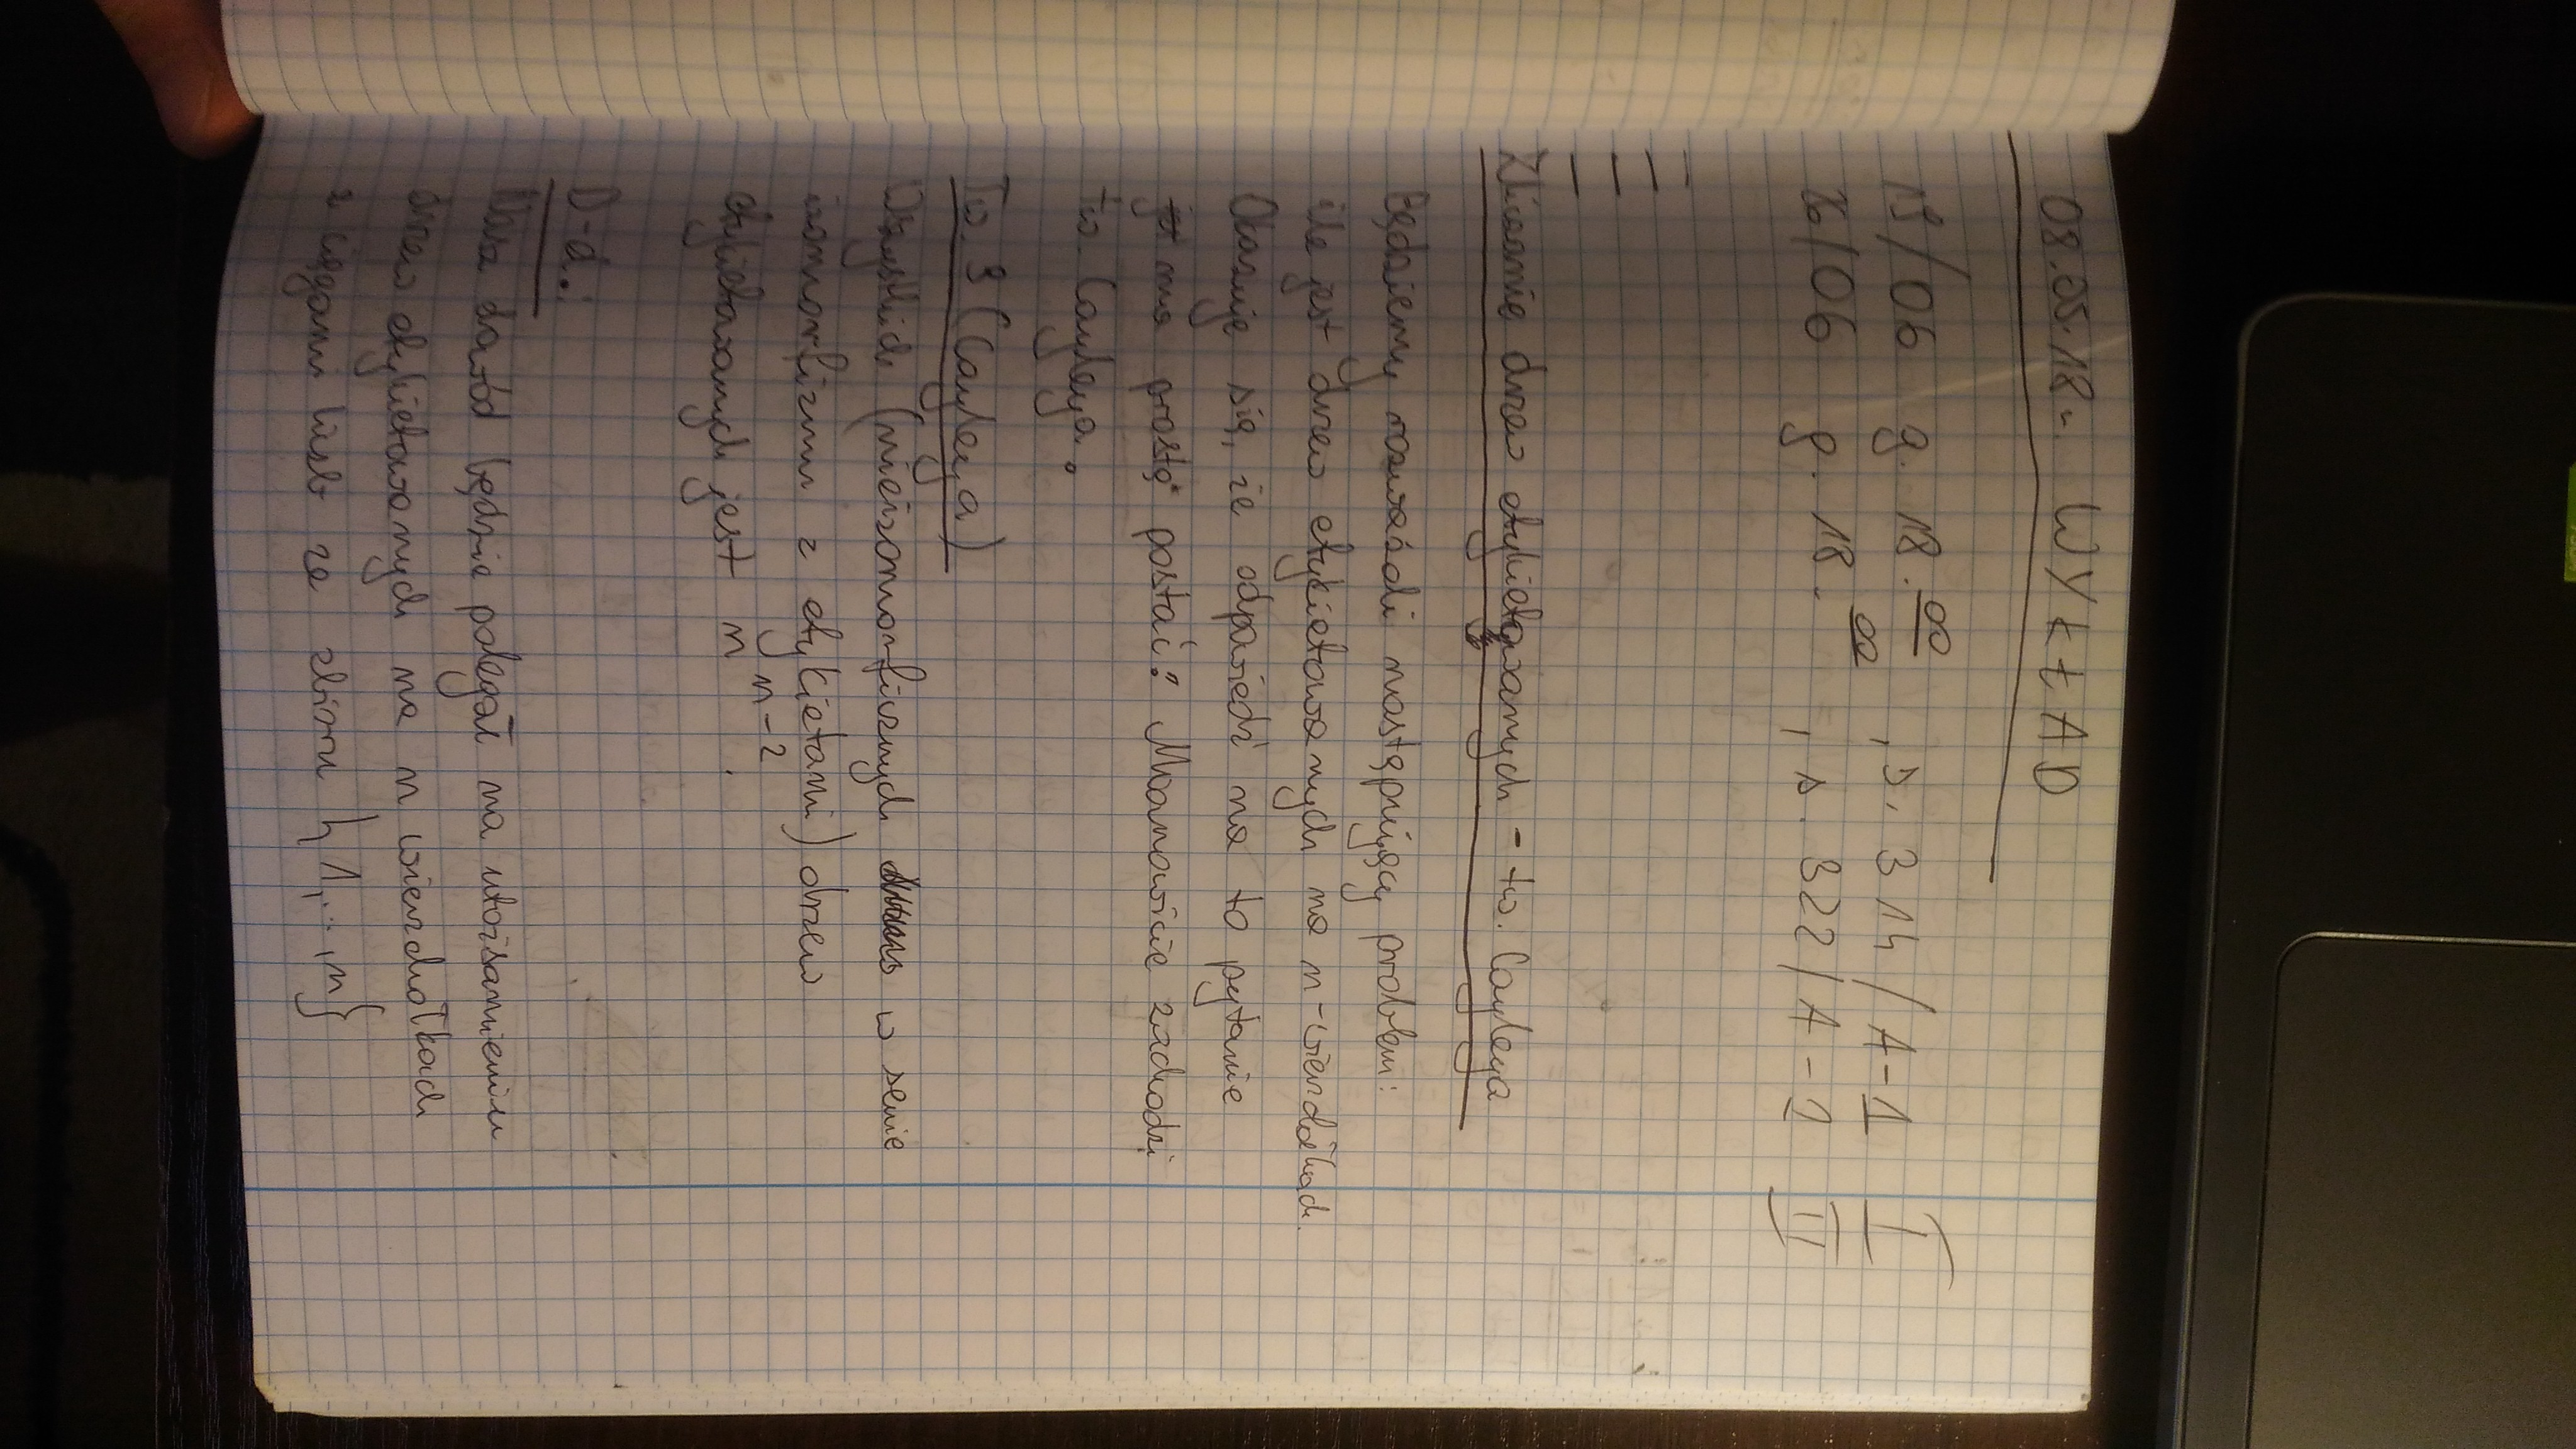 08.05.18r. WYKŁAD
19/06 g. 18.00, s. 314/A-1 I
26/06 g. 18.00, s. 322/A-1 II
Zliczanie drzew etykietowanych - tw. Cayleya
Będziemy rozważali następujący problem:
ile jest drzew etykietowanych na n-wierzchołkach.
Okazuje się, że odpowiedź na to pytanie
ma prostą postać: Mianowicie zachodzi
tw. Cayleya.
Tw. 3 (Cayleya)
Wszystkich (nieizomorficznych w sensie
izomorfizmu z etykietami) drzew
etykietowanych jest n^{n-2}.
D-d.:
Nasz dowód będzie polegał na utożsamieniu
drzew etykietowanych na n wierzchołkach
z ciągami liczb ze zbioru {1,...,n}